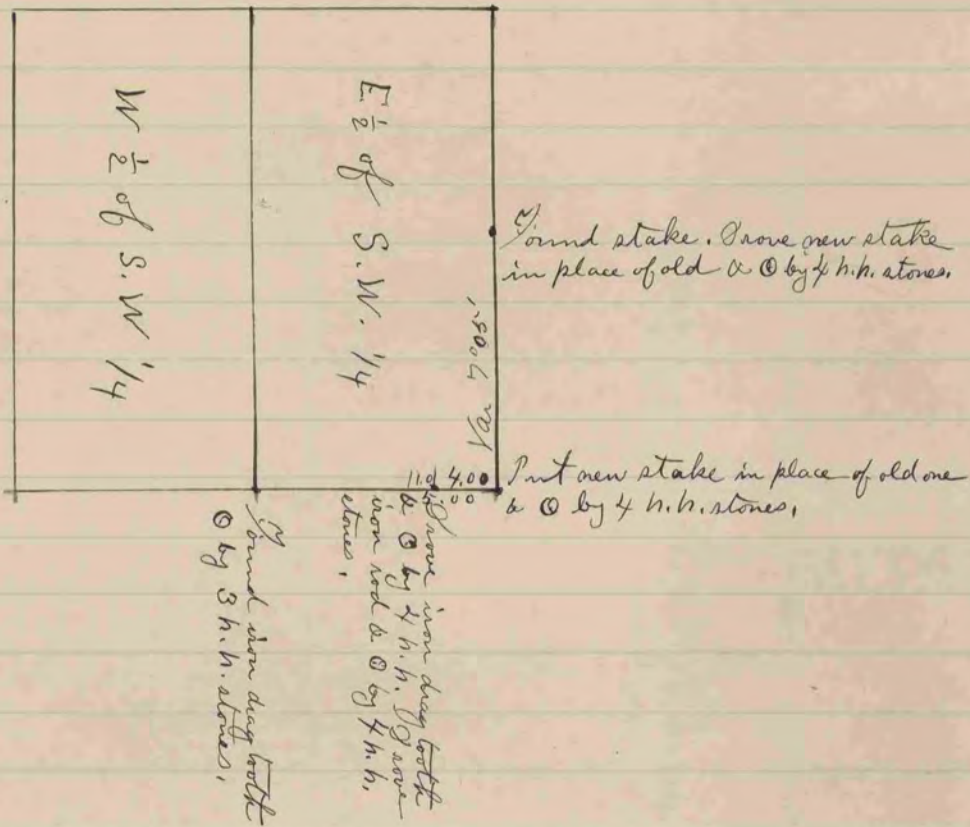 W ½ of S.W. ¼
E ½ of S.W. ¼
Va. 7°08'.
Found stake. Drove new stake
in place of old & ⊙ by 4 h.h. stones.
11.0 4.00
Put new stake in place of old one
& ⊙ by 4 h.h. stones.
Drove iron drag tooth
& ⊙ by 4 h.h. Drove
iron rod & ⊙ by 4 h.h.
stones.
Found iron drag tooth
⊙ by 3 h.h. stones.